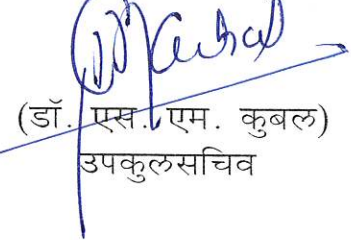 (डॉ. एस. एम. कुबल)
उपकुलसचिव